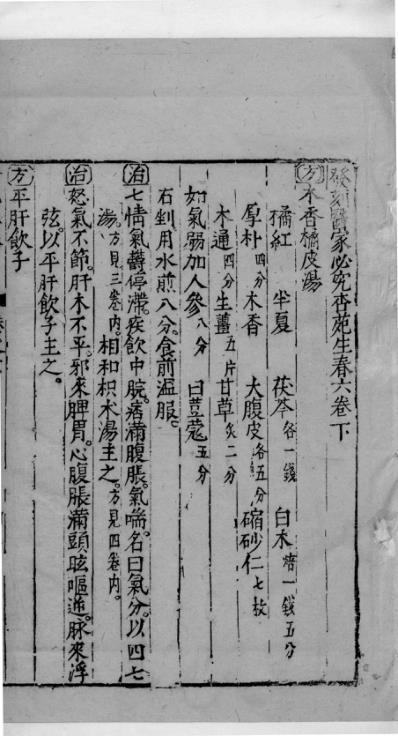 發刻醫家必究杏苑生春六卷下
方木香橘皮湯
橘紅 半夏 茯苓各一錢 白术焙一錢五分
厚朴四分 木香 大腹皮各五分 縮砂仁七枚
木通四分 生薑五片 甘草炙二分
如氣弱加人參八分 白荳蔻五分
右剉用水煎八分。食前溫服。
治七情氣欝停滯。痰飲中脘。痞滿腹脹。氣喘。名曰氣分。以四七
湯。方見三卷内。相和枳术湯主之。方見四卷内。
治怒氣不節。肝木不平。邪來脾胃。心腹脹滿頭眩嘔逆。脉來浮
弦。以平肝飲子主之。
方平肝飲子